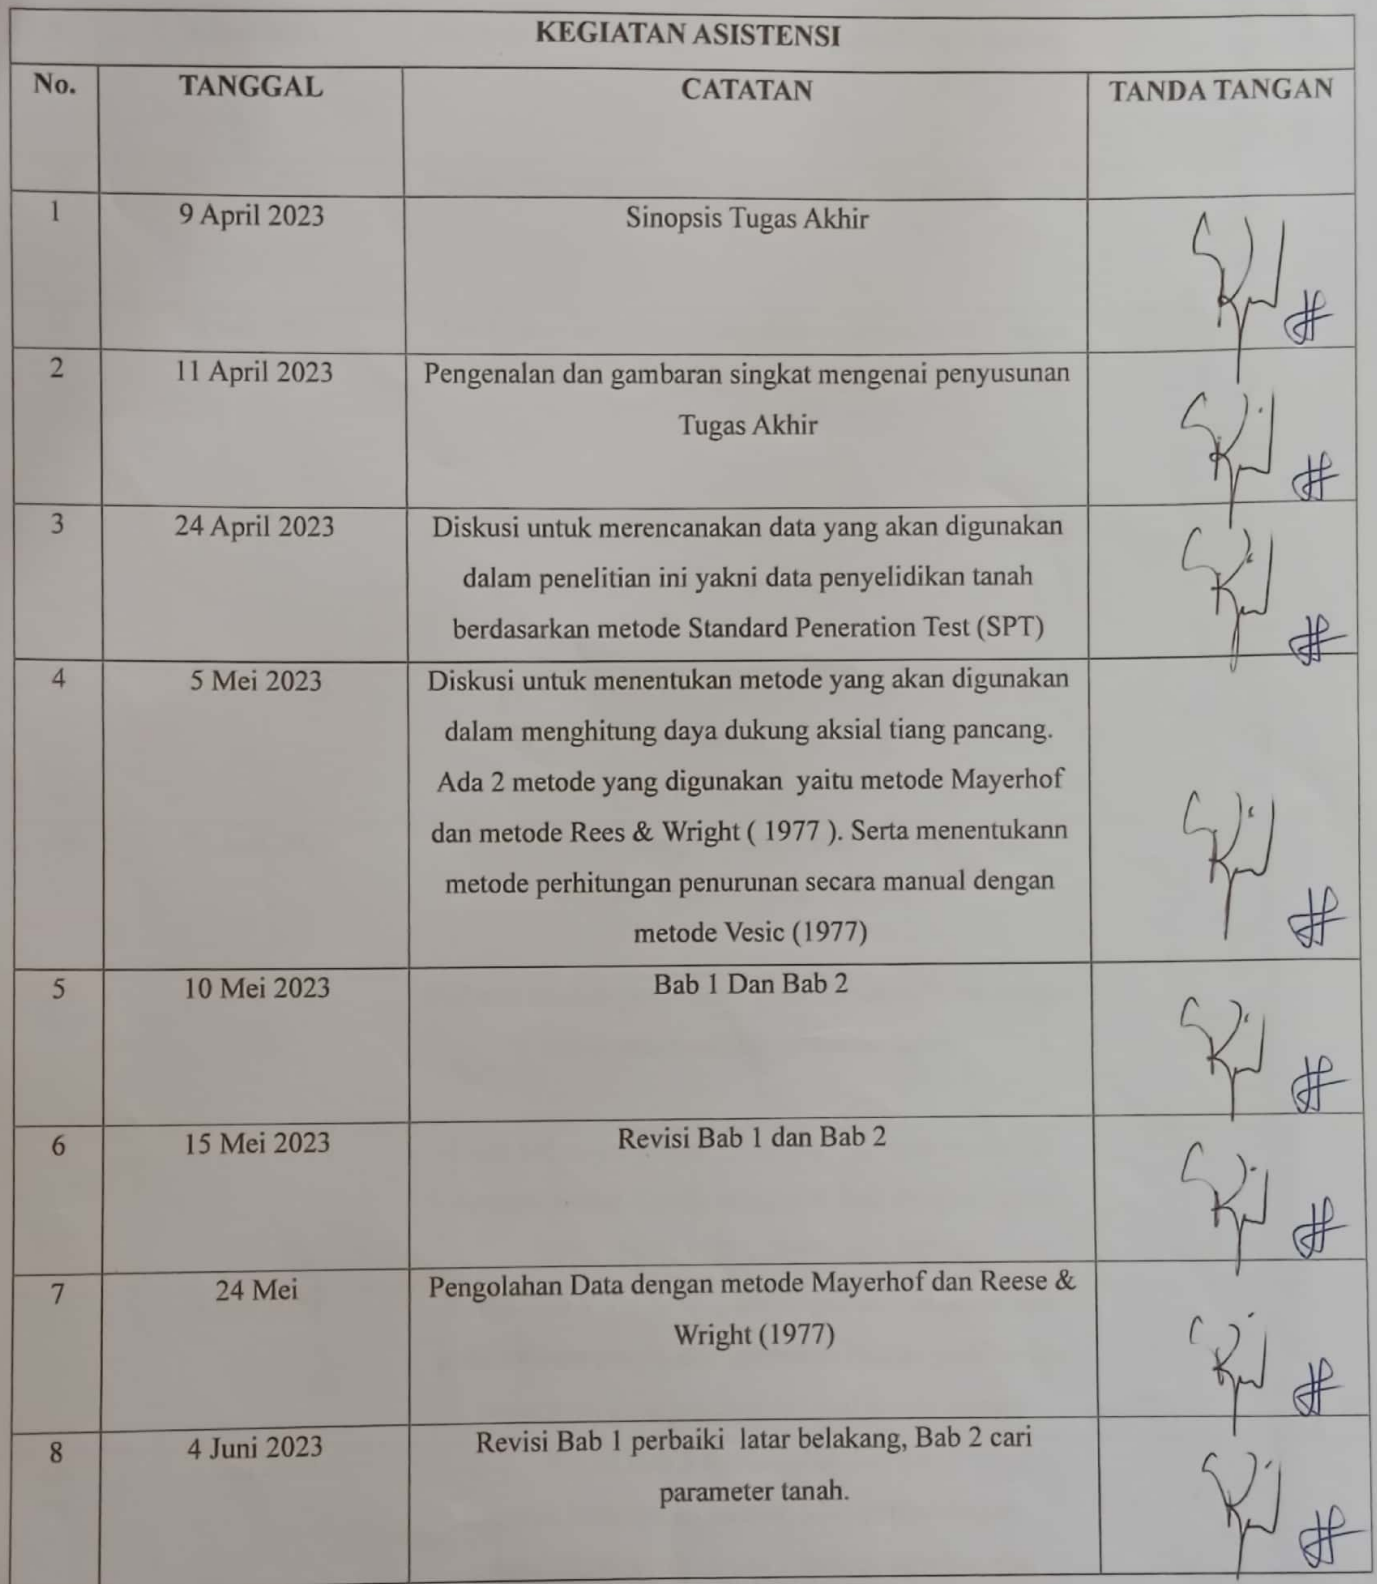 KEGIATAN ASISTENSI
No. TANGGAL CATATAN TANDA TANGAN
1 9 April 2023 Sinopsis Tugas Akhir
2 11 April 2023 Pengenalan dan gambaran singkat mengenai penyusunan
Tugas Akhir
3 24 April 2023 Diskusi untuk merencanakan data yang akan digunakan
dalam penelitian ini yakni data penyelidikan tanah
berdasarkan metode Standard Peneration Test (SPT)
4 5 Mei 2023 Diskusi untuk menentukan metode yang akan digunakan
dalam menghitung daya dukung aksial tiang pancang.
Ada 2 metode yang digunakan yaitu metode Mayerhof
dan metode Rees & Wright ( 1977 ). Serta menentukann
metode perhitungan penurunan secara manual dengan
metode Vesic (1977)
5 10 Mei 2023 Bab 1 Dan Bab 2
6 15 Mei 2023 Revisi Bab 1 dan Bab 2
7 24 Mei Pengolahan Data dengan metode Mayerhof dan Reese &
Wright (1977)
8 4 Juni 2023 Revisi Bab 1 perbaiki latar belakang, Bab 2 cari
parameter tanah.